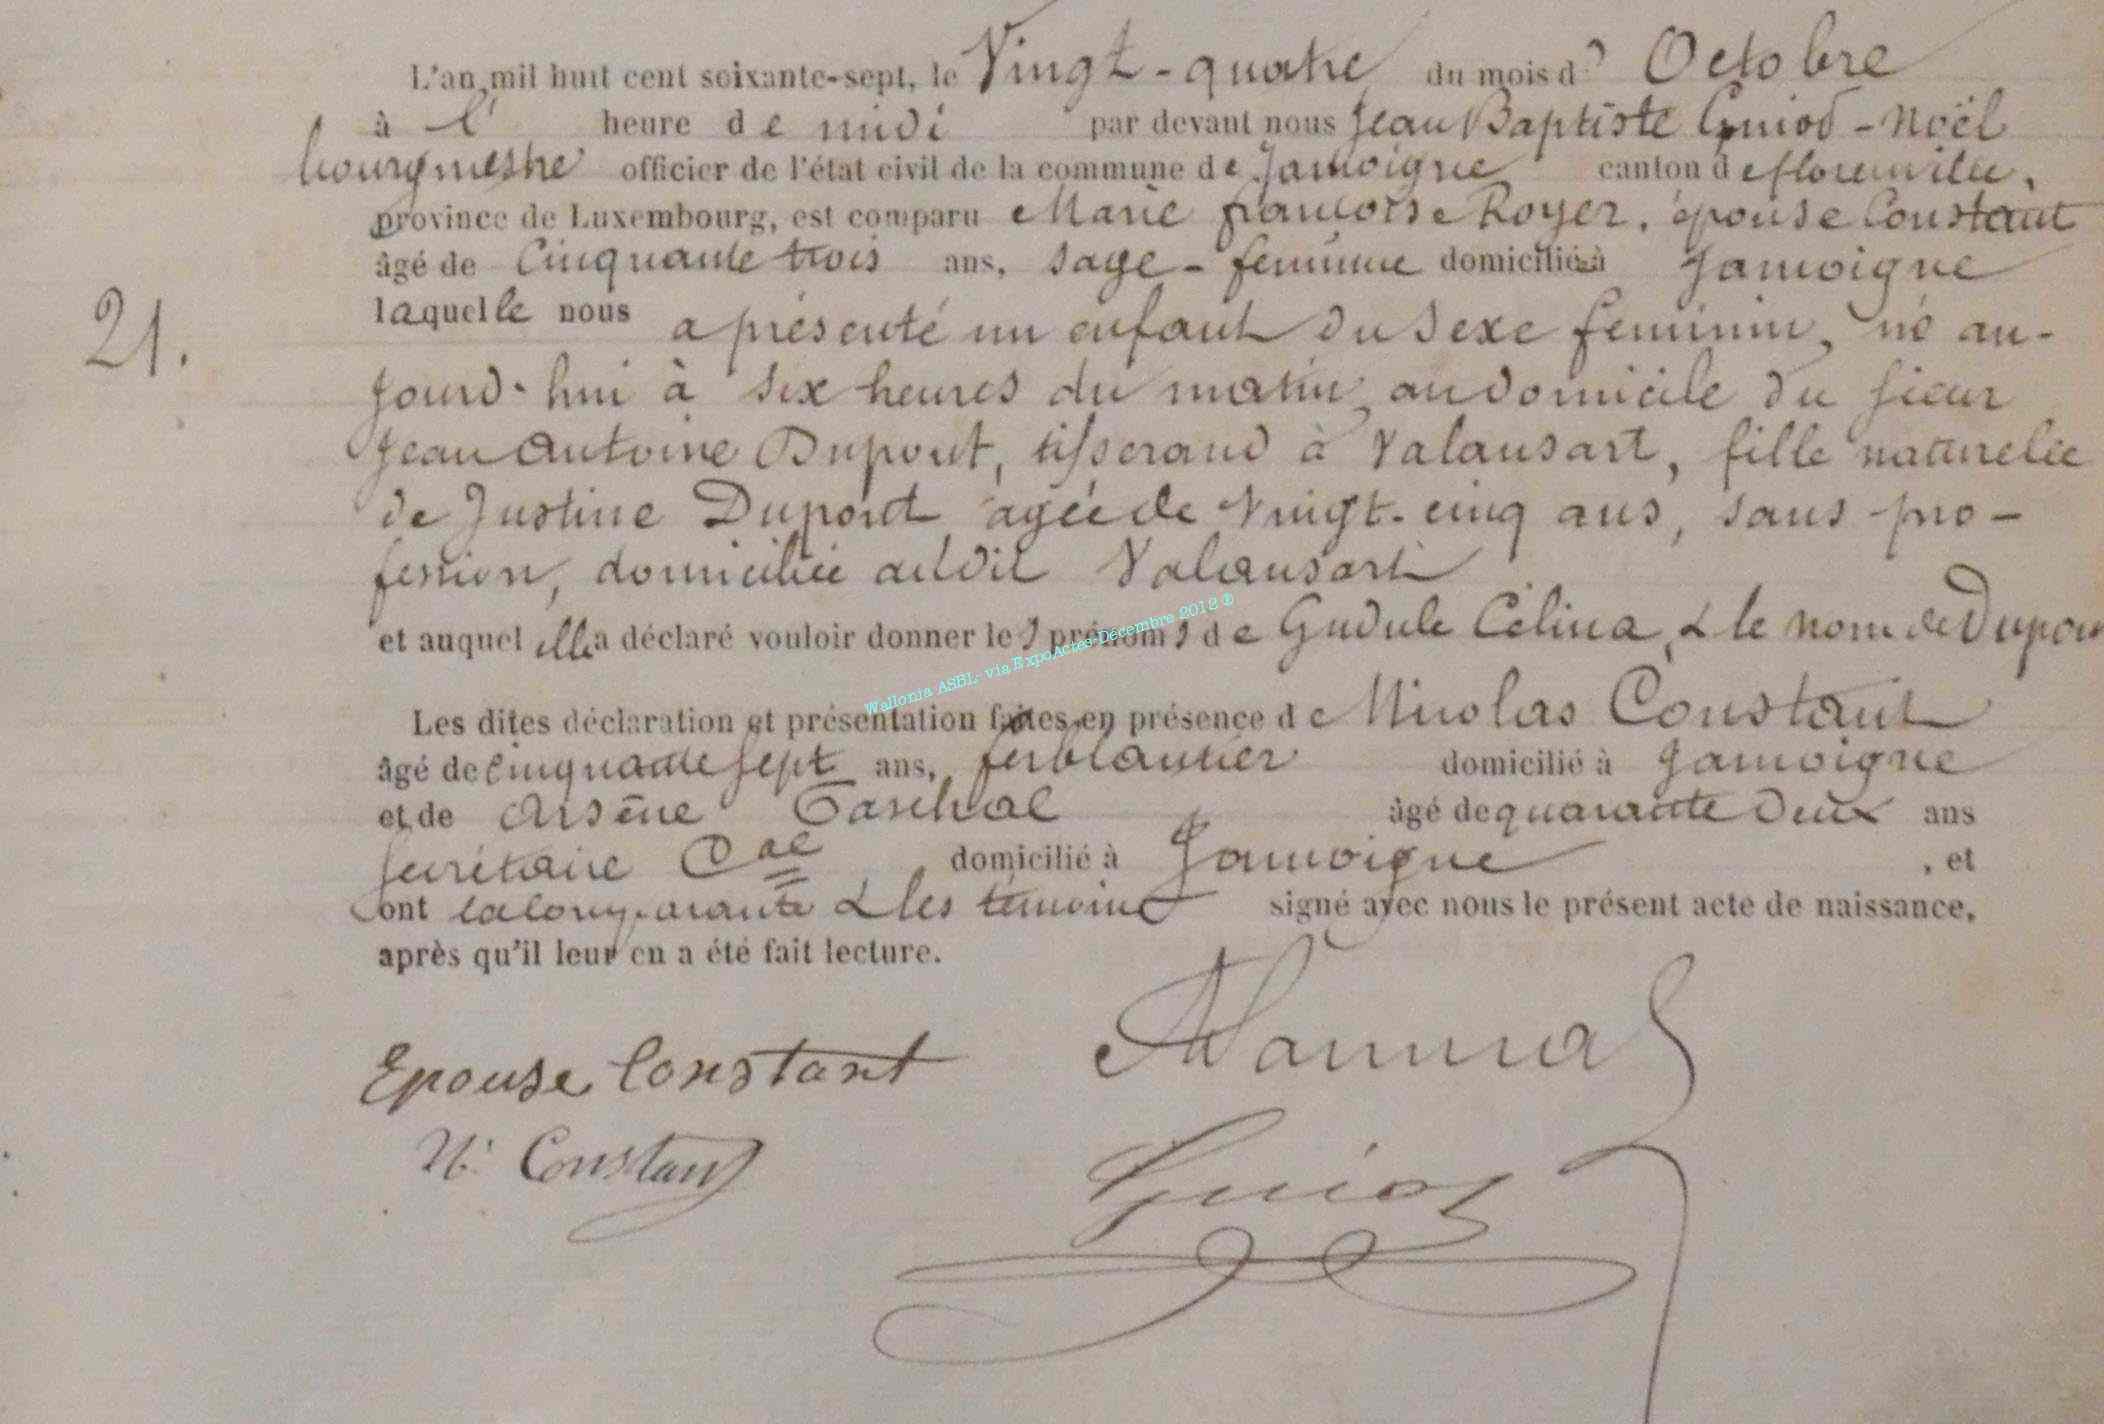 L'an mil huit cent soixante-sept, le Vingt-quatre du mois d' Octobre
à l' heure de midi par devant nous Jean Baptiste Guiod-Noël
bourgmestre officier de l'état civil de la commune de Jamoigne canton de florenville,
province de Luxembourg, est comparu Marie françoise Royer, épouse Constant
âgé de Cinquante trois ans, sage-femme domicilié à Jamoigne
21. laquelle nous a présenté un enfant du sexe feminin, né au-
jourd-hui à six heures du matin, au domicile du sieur
Jean Antoine Dupont, tisserand à Valansart, fille naturelle
de Justine Dupont agée de Vingt-cinq ans, sans pro-
fession, domiciliée audit Valansart
et auquel elle a déclaré vouloir donner les prénoms de Gudule Célina, & le nom de Dupont
Wallonia ASBL- via ExpoActes-Décembre 2012 ®
Les dites déclaration et présentation faites en présence de Nicolas Constant
âgé de cinquante sept ans, ferblantier domicilié à Jamoigne
et de Arsène âgé de quarante deux ans
secrétaire Cal domicilié à Jamoigne, et
ont la comparante & les témoins signé avec nous le présent acte de naissance,
après qu'il leur en a été fait lecture.
Epouse Constant
N. Constant
Guiod